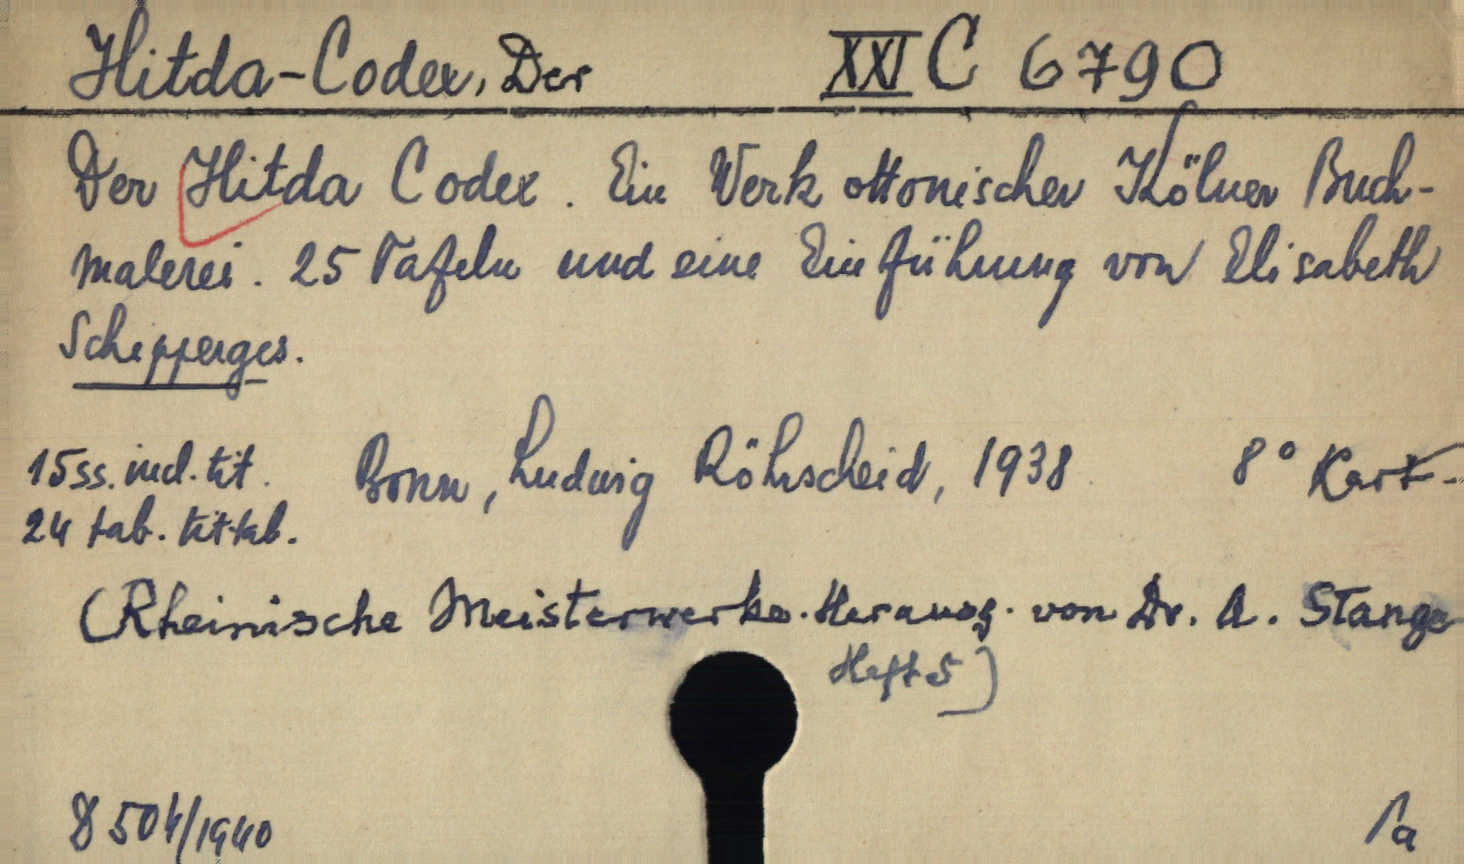 Hitda-Codex, Der XXI C 6790
Der Hitda Codex. Ein Werk ottonischer Kölner Buch-
malerei. 25 Tafeln und eine Einführung von Elisabeth
Schipperges.
15ss. incl. tit. Bonn, Ludwig Röhrscheid, 1938 8° Kart.
24 tab. tit. tab.
(Rheinische Meisterwerke. Herausg. von Dr. A. Stange
Heft 5)
504/1940